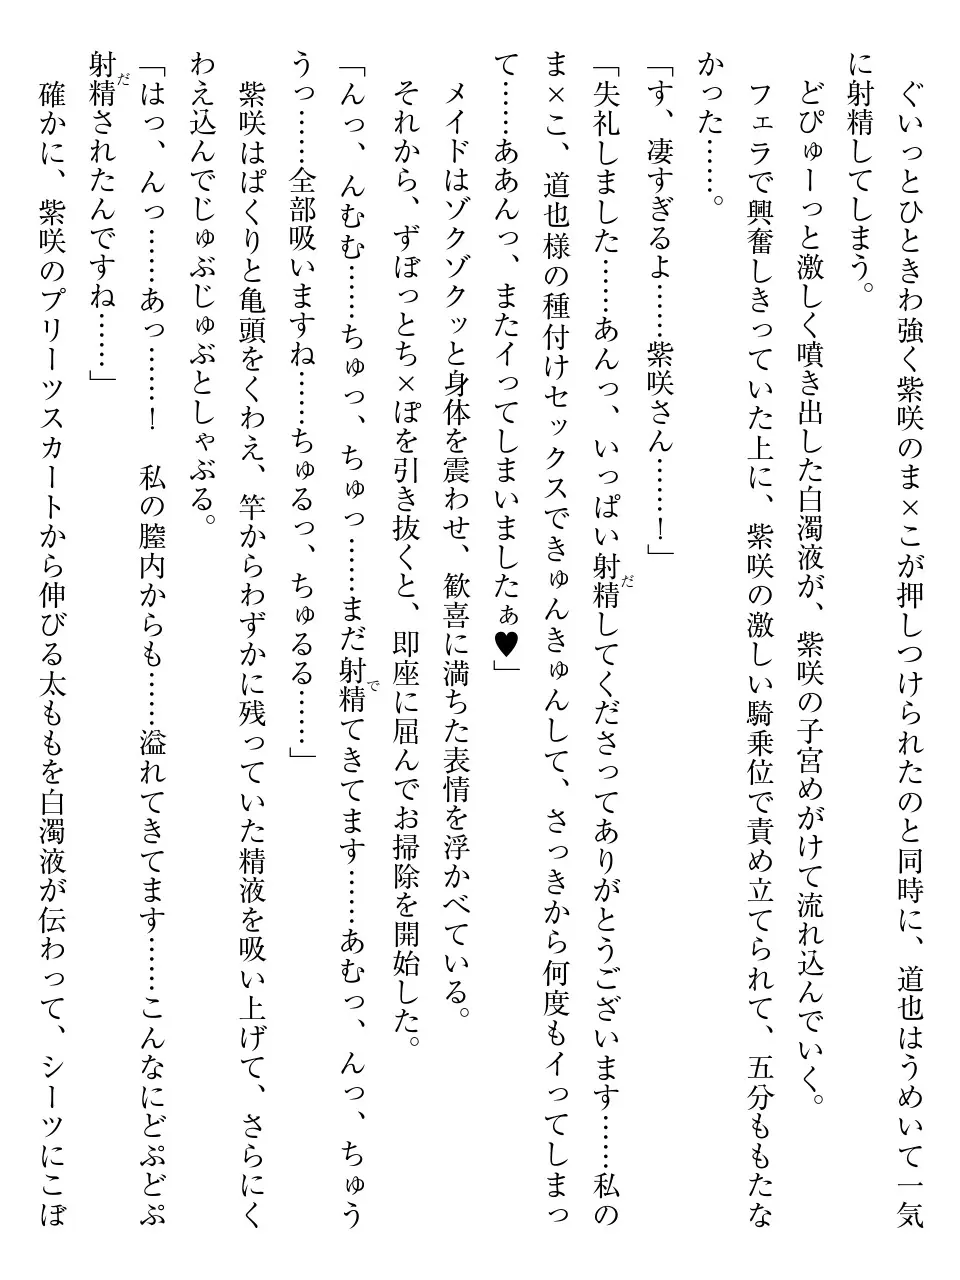 ぐいっとひときわ強く紫咲のま×こが押しつけられたのと同時に、道也はうめいて一気
に射精してしまう。
どぴゅーっと激しく噴き出した白濁液が、紫咲の子宮めがけて流れ込んでいく。
フェラで興奮しきっていた上に、紫咲の激しい騎乗位で責め立てられて、五分ももたな
かった……。
「す、凄すぎるよ……紫咲さん……！」
だ
「失礼しました……あんっ、いっぱい射精してくださってありがとうございます……私の
ま×こ、道也様の種付けセックスできゅんきゅんして、さっきから何度もイってしまっ
て……ああんっ、またイってしまいましたぁ♥」
メイドはゾクゾクッと身体を震わせ、歓喜に満ちた表情を浮かべている。
それから、ずぼっとち×ぽを引き抜くと、即座に屈んでお掃除を開始した。
で
「んっ、んむむ……ちゅっ、ちゅっ……まだ射精てきてます……あむっ、んっ、ちゅう
うっ……全部吸いますね……ちゅるっ、ちゅるる……」
紫咲はぱくりと亀頭をくわえ、竿からわずかに残っていた精液を吸い上げて、さらにく
わえ込んでじゅぶじゅぶとしゃぶる。
「はっ、んっ……あっ……！　私の膣内からも……溢れてきてます……こんなにどぷどぷ
だ
射精されたんですね……」
確かに、紫咲のプリーツスカートから伸びる太ももを白濁液が伝わって、シーツにこぼ